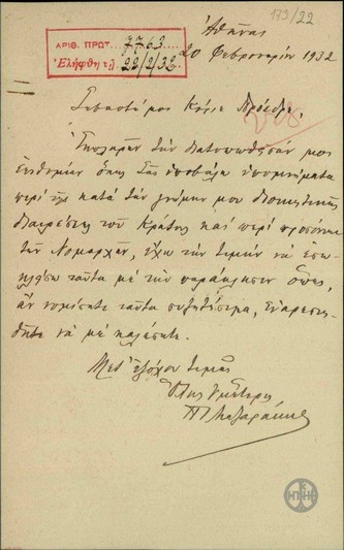 173/22
Ἀθῆναι
20 Φεβρουαρίου 1932
ΑΡΙΘ. ΠΡΩΤ. 7763
Ἐλήφθη τῇ 22/2/32
Σεβαστέ μοι Κύριε Πρόεδρε,
τὴν διατυπωθεῖσάν μοι
ἐπιθυμίαν ὅπως Σᾶς ὑποβάλω ὑπομνήματα
περὶ τῆς κατὰ τὴν γνώμην μου διοικητικῆς
διαιρέσεως τοῦ Κράτους καὶ περὶ προσόντων
τῶν Νομαρχῶν, ἔχω τὴν τιμὴν νὰ ἐσω-
κλείσω ταῦτα μὲ τὴν παράκλησιν ὅπως,
ἂν νομίσητε ταῦτα συζητήσιμα, εὐαρεστη-
θῆτε νὰ μὲ καλέσητε.
Μετ' ἐξόχου τιμῆς
Ὅλως Ὑμέτερος